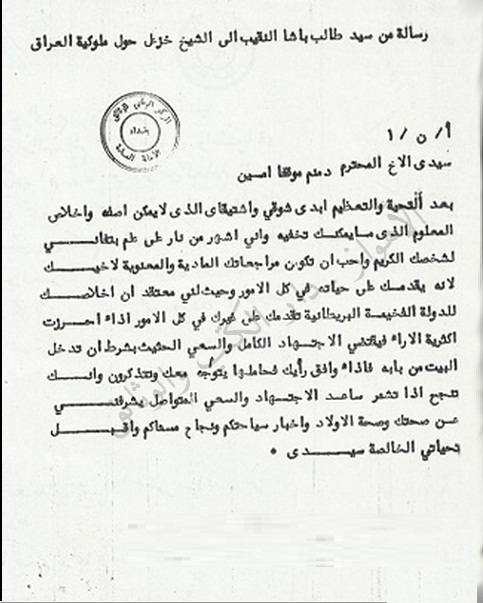 رسالة من سيد طالب باشا النقيب الى الشيخ خزعل حول ملوكية العراق
بغداد
أ/ن/١
سيدى الاخ المحترم دمتم موفقا امين
بعد التحية والتعظيم ابدى شوقي واشتياقى الذى لا يمكن اصفه واخلاص
المعلوم الذى ما يمكنك تخفيه واني اشهر من نار على علم بتفانــي
لشخصك الكريم واحب ان تكون مراجعاتك المادية والمعنوية لاخيــك
لانه يقدمــك على حياته في كل الامور وحيث لني معتقد ان اخلاصــك
للدولة الفخيمــة البريطانية تقدمك على غيرك في كل الامور اذاء احــرزت
اكثرية الاراء فيقتضي الاجتهــاد الكامل والسعي الحثيث بشرط ان تدخل
البيت من بابه فاذاء وافق رأيك فحاملها يتوجه معك وتتذكرون وانــك
تنجح اذا تشمر ساعد الاجتهــاد والسعي المتواصل يشرفنــي
عن صحتك وصحة الاولاد واخبار سياحتكم ونجاح مسعاكم واقبــل
تحياتي الخالصة سيــدى *
الاهواز دار الكتب والوثائق